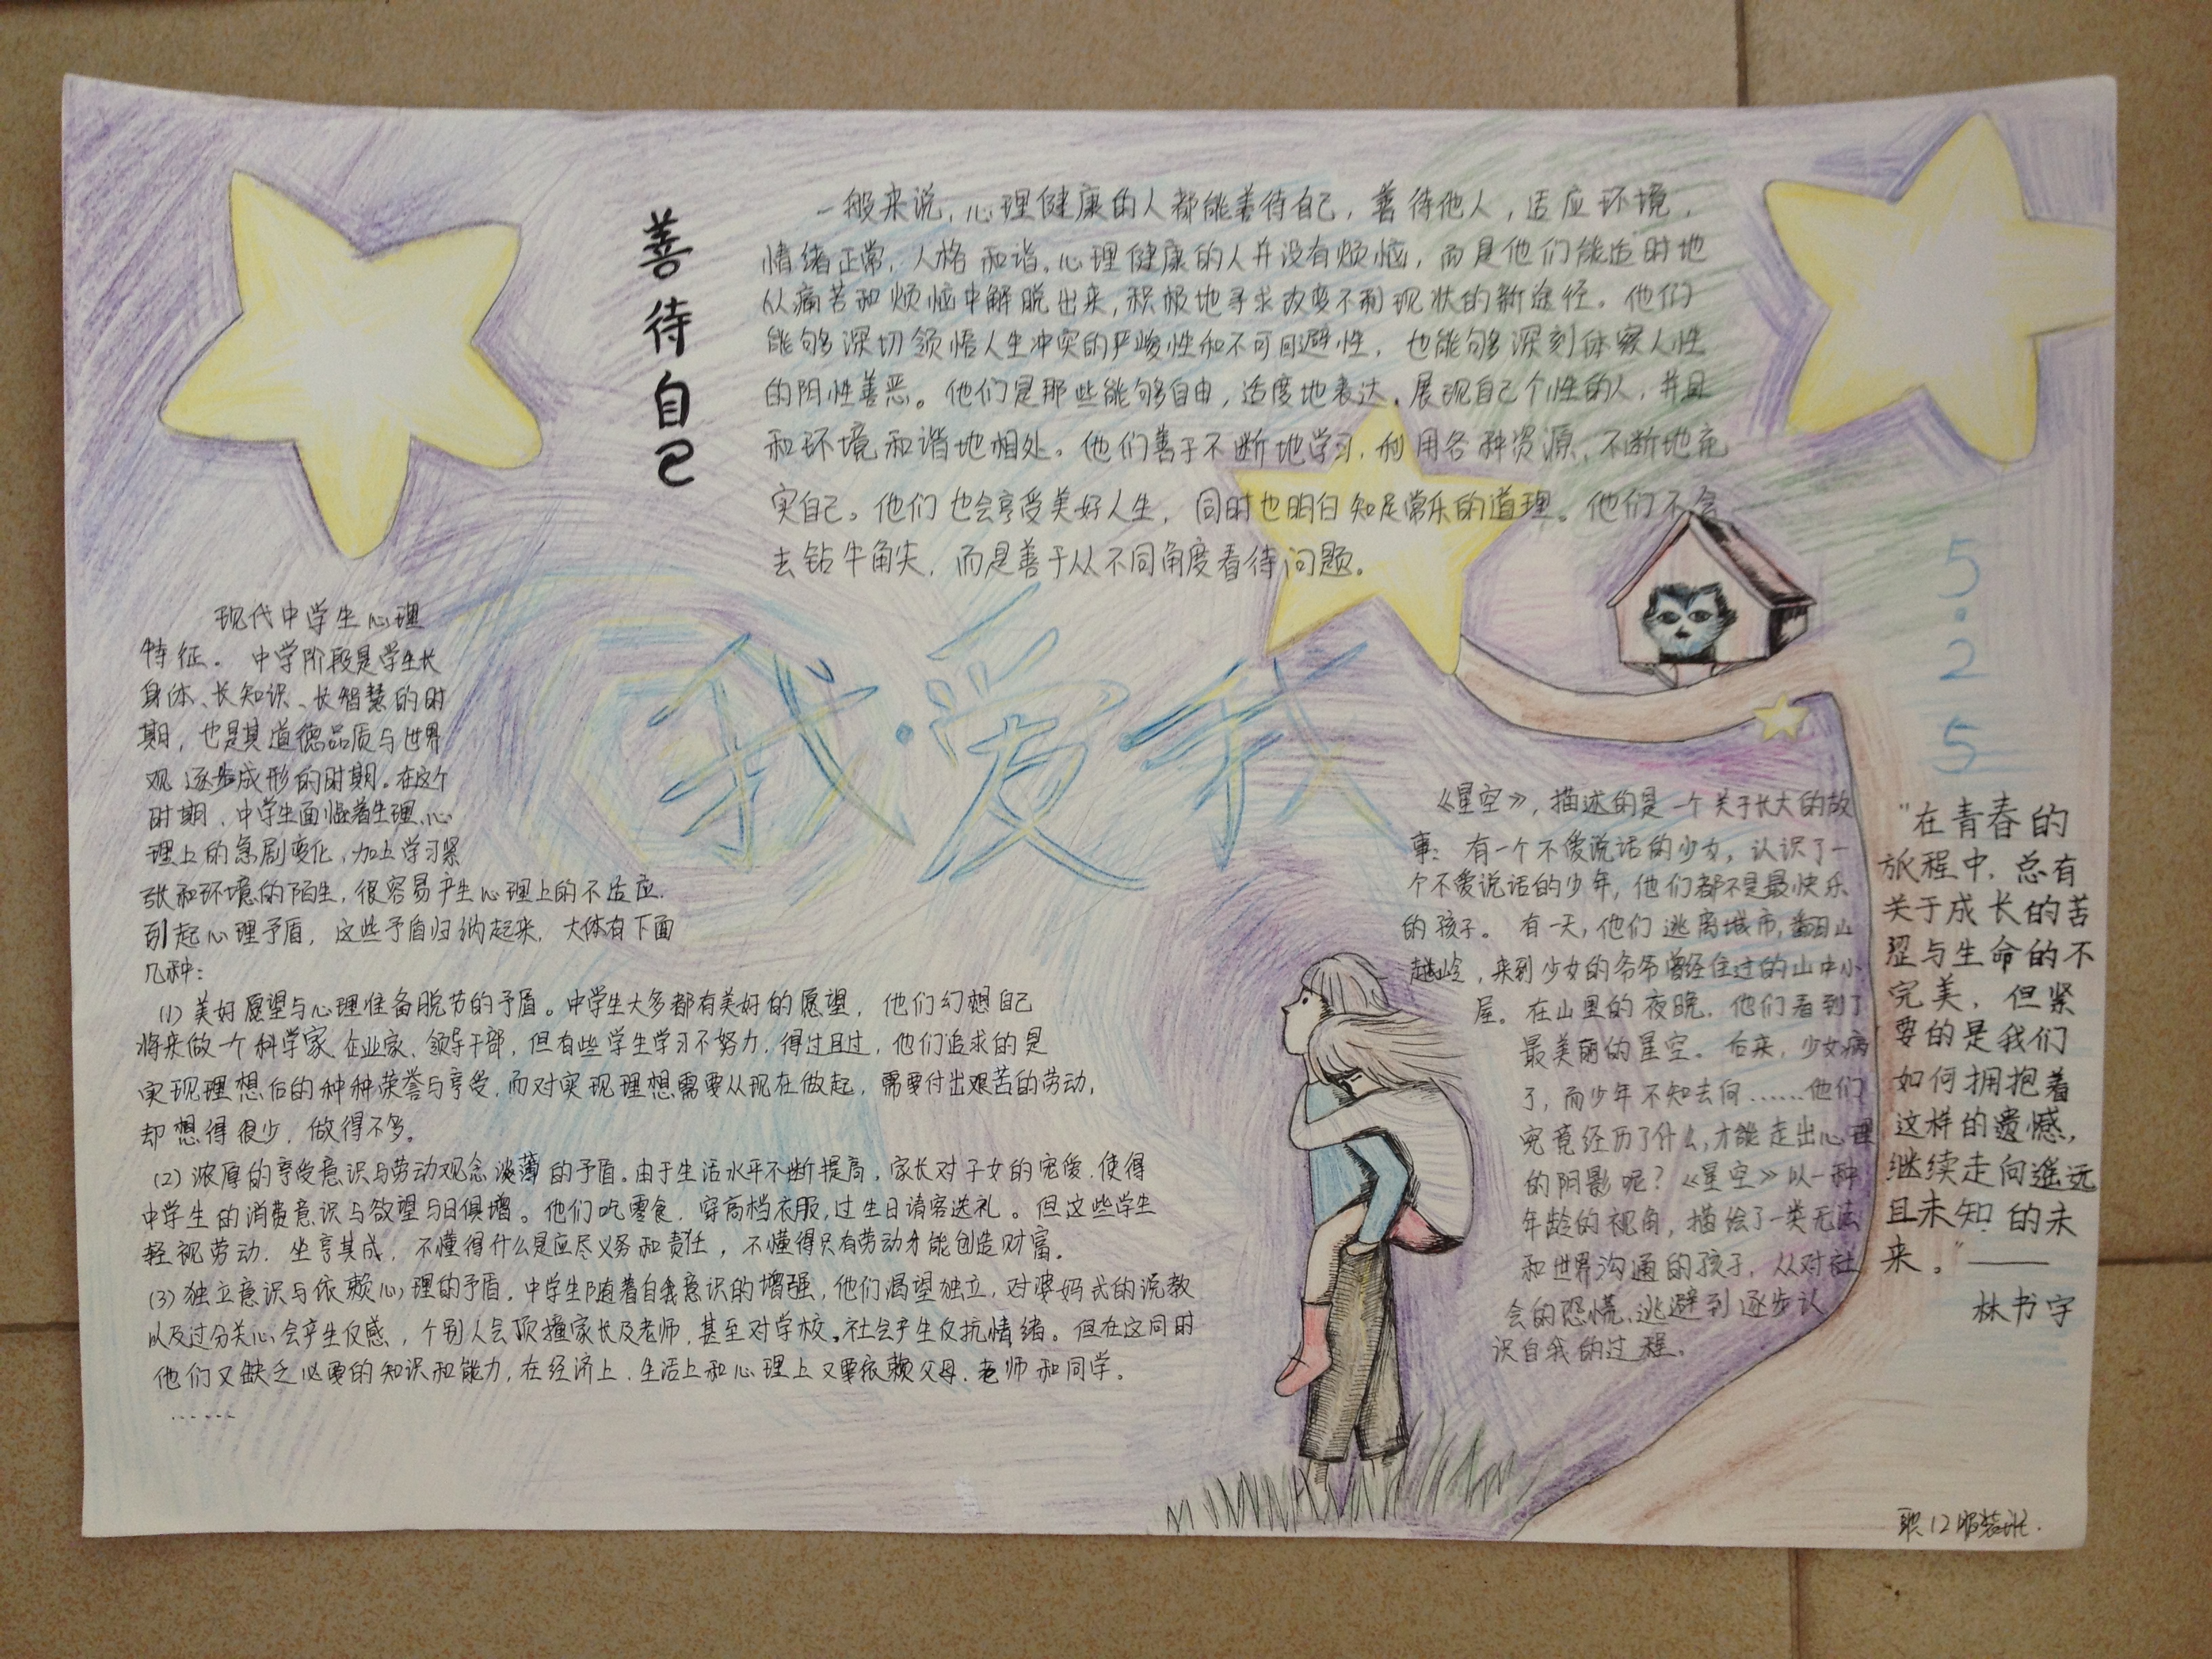 善待自己
一般来说,心理健康的人都能善待自己,善待他人,适应环境,
情绪正常,人格和谐。心理健康的人并没有烦恼,而是他们能适时地
从痛苦和烦恼中解脱出来,积极地寻求改变不利现状的新途径。他们
能够深切领悟人生冲突的严峻性和不可回避性,也能够深刻体察人性
的阴性善恶。他们是那些能够自由,适度地表达、展现自己个性的人,并且
和环境和谐地相处。他们善于不断地学习,利用各种资源,不断地充
实自己。他们也会享受美好人生,同时也明白知足常乐的道理。他们不会
去钻牛角尖,而是善于从不同角度看待问题。
我·爱我
现代中学生心理
特征。中学阶段是学生长
身体、长知识、长智慧的时
期,也是其道德品质与世界
观逐步成形的时期。在这个
时期,中学生面临着生理、心
理上的急剧变化,加上学习紧
张和环境的陌生,很容易产生心理上的不适应,
引起心理矛盾,这些矛盾归纳起来,大体有下面
几种:
(1)美好愿望与心理准备脱节的矛盾。中学生大多都有美好的愿望,他们幻想自己
将来做一个科学家、企业家、领导干部,但有些学生学习不努力,得过且过,他们追求的是
实现理想后的种种荣誉与享受,而对实现理想需要从现在做起,需要付出艰苦的劳动,
却想得很少,做得不多。
(2)浓厚的享受意识与劳动观念淡薄的矛盾。由于生活水平不断提高,家长对子女的宠爱,使得
中学生的消费意识与欲望与日俱增。他们吃零食,穿高档衣服,过生日请客送礼。但这些学生
轻视劳动,坐享其成,不懂得什么是应尽义务和责任,不懂得只有劳动才能创造财富。
(3)独立意识与依赖心理的矛盾。中学生随着自我意识的增强,他们渴望独立,对婆妈式的说教
以及过分关心会产生反感,个别人会顶撞家长及老师,甚至对学校、社会产生反抗情绪。但在这同时
他们又缺乏必要的知识和能力,在经济上、生活上和心理上又要依赖父母、老师和同学。
……
《星空》,描述的是一个关于长大的故
事:有一个不爱说话的少女,认识了一
个不爱说话的少年,他们都不是最快乐
的孩子。有一天,他们逃离城市,翻山
越岭,来到少女的爷爷曾经住过的山中小
屋。在山里的夜晚,他们看到了
最美丽的星空。后来,少女病
了,而少年不知去向……他们
究竟经历了什么,才能走出心理
的阴影呢?《星空》以一种
年龄的视角,描绘了一类无法
和世界沟通的孩子,从对社
会的恐慌、逃避到逐步认
识自我的过程。
5·25
"在青春的
旅程中,总有
关于成长的苦
涩与生命的不
完美,但紧
要的是我们
如何拥抱着
这样的遗憾,
继续走向遥远
且未知的未
来。"——
林书宇
职12服装班.